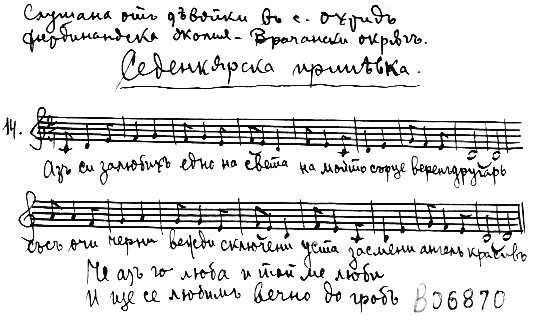 Слушана отъ дѣвойки въ с. Охридъ
фердинандска околия - Врачански окрѫгъ.
Седенкярска припѣвка.
14.
Азъ си залюбихъ едно на света на мойто сърце веренъ другарь
съсъ очи черни вежди сключени уста засмени ангелъ красивъ
Че азъ го люба и той ме люби
И ще се любимъ вечно до гробъ
B06870